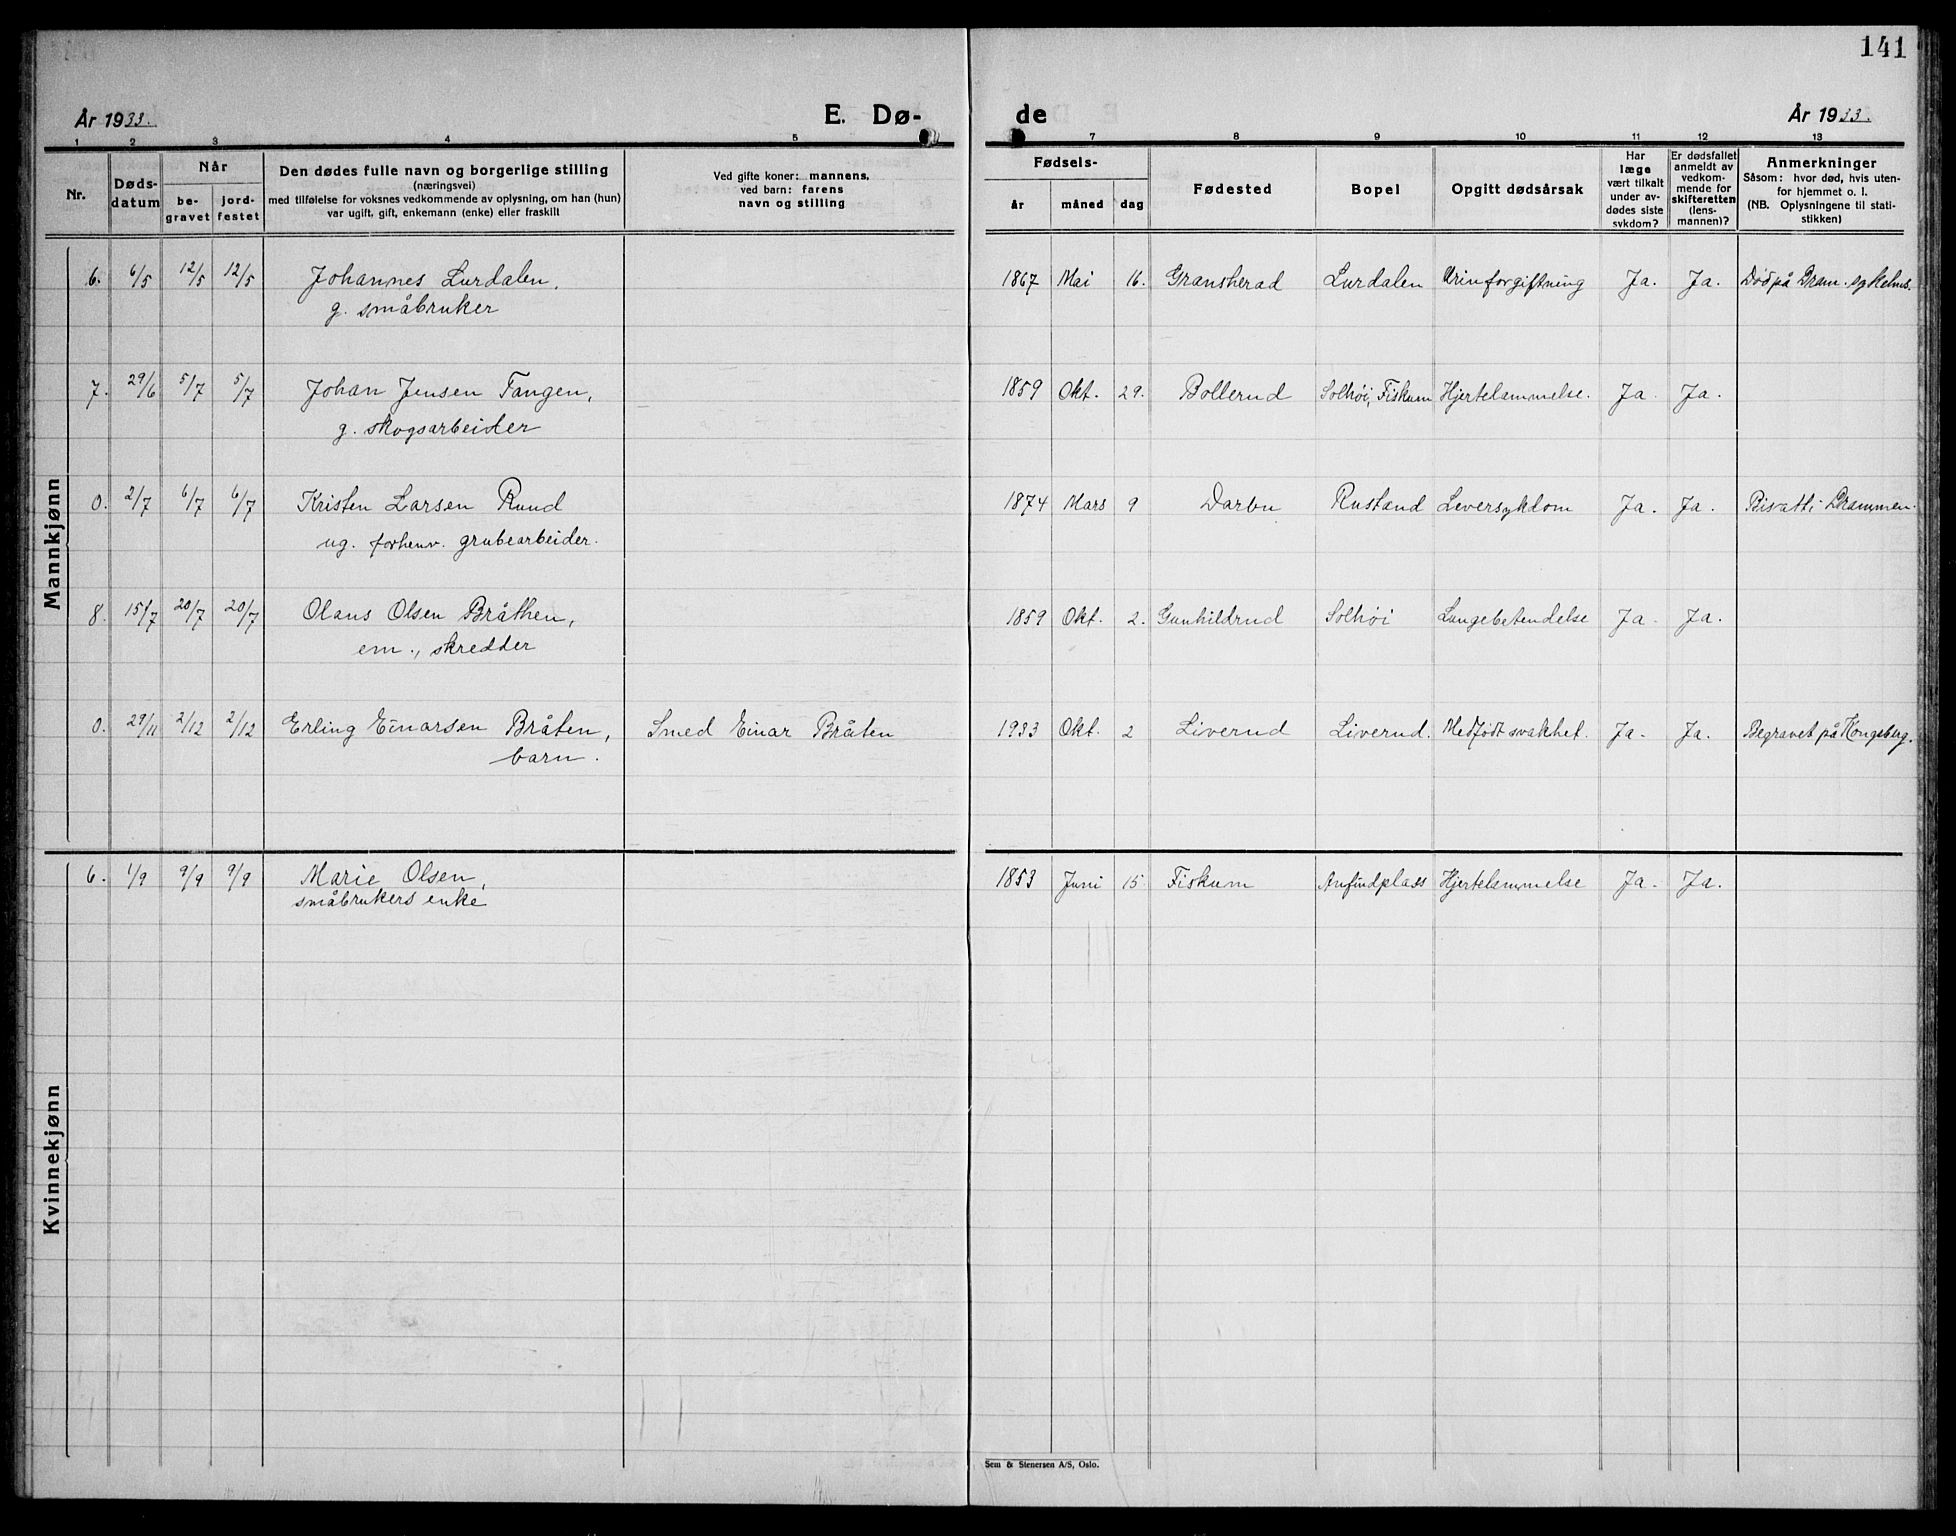 141
År 1933.
E. Dø-
de
År 1933.
1 2 3 4 5 7 8 9 10 11 12 13
Nr.
Døds-
datum
Når
be-
gravet
jord-
festet
Den dødes fulle navn og borgerlige stilling
(næringsvei)
med tilføielse for voksnes vedkommende av oplysning, om han (hun)
var ugift, gift, enkemann (enke) eller fraskilt
Ved gifte koner: mannens,
ved barn: farens
navn og stilling
Fødsels-
år måned dag
Fødested
Bopel
Opgitt dødsårsak
Har
læge
vært tilkalt
under av-
dødes siste
sykdom?
Er dødsfallet
anmeldt av
vedkom-
mende for
skifteretten
(lens-
mannen)?
Anmerkninger
Såsom: hvor død, hvis uten-
for hjemmet o. l.
(NB. Oplysningene til stati-
stikken)
Mannkjønn
6. 6/5 12/5 12/5 Johannes Lurdalen, 1867 Mai 16. Gransherad Lurdalen Urinforgiftning Ja. Ja. Død på Dram. sykehus.
g. småbruker
7. 29/6 5/7 5/7 Johan Jensen Tangen, 1859 Okt. 29. Bollerud Solhøi, Fiskum Hjertelammelse. Ja. Ja.
g. skogsarbeider
0. 2/7 6/7 6/7 Kristen Larsen Ruud 1874 Mars 9 Darbu Rustand Leversykdom Ja. Ja. Bisatt i Drammen.
ug. forhenv. grubearbeider.
8. 15/7 20/7 20/7 Olaus Olsen Bråthen, 1859 Okt. 2. Gunhildrud Solhøi Lungebetendelse Ja. Ja.
em., skredder
0. 29/11 2/12 2/12 Erling Einarsen Bråten, Smed Einar Bråten 1933 Okt. 2 Liverud Liverud. Medfødt svakhet. Ja. Ja. Begravet på Kongsberg.
barn.
Kvinnekjønn
6. 1/9 9/9 9/9 Marie Olsen, 1853 Juni 15. Fiskum Anfindplass Hjertelammelse Ja. Ja.
småbrukers enke
Sem & Stenersen A/S, Oslo.